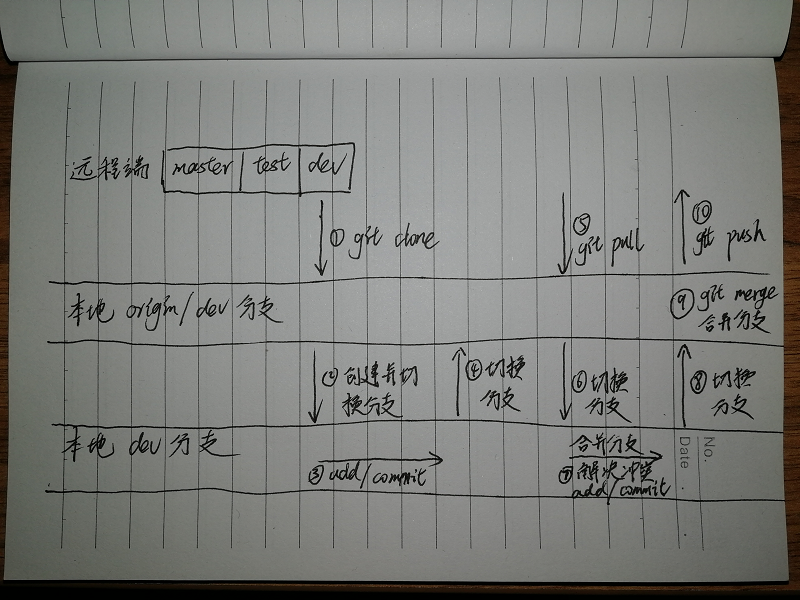 远程端 master test dev
① git clone
⑤ git pull
⑩ git push
本地 origin/dev 分支
⑨ git merge
合并分支
② 创建并切
换分支
④ 切换
分支
⑥ 切换
分支
⑧ 切换
分支
本地 dev 分支
③ add/commit
合并分支
⑦ 解决冲突
add/commit
No.
Date